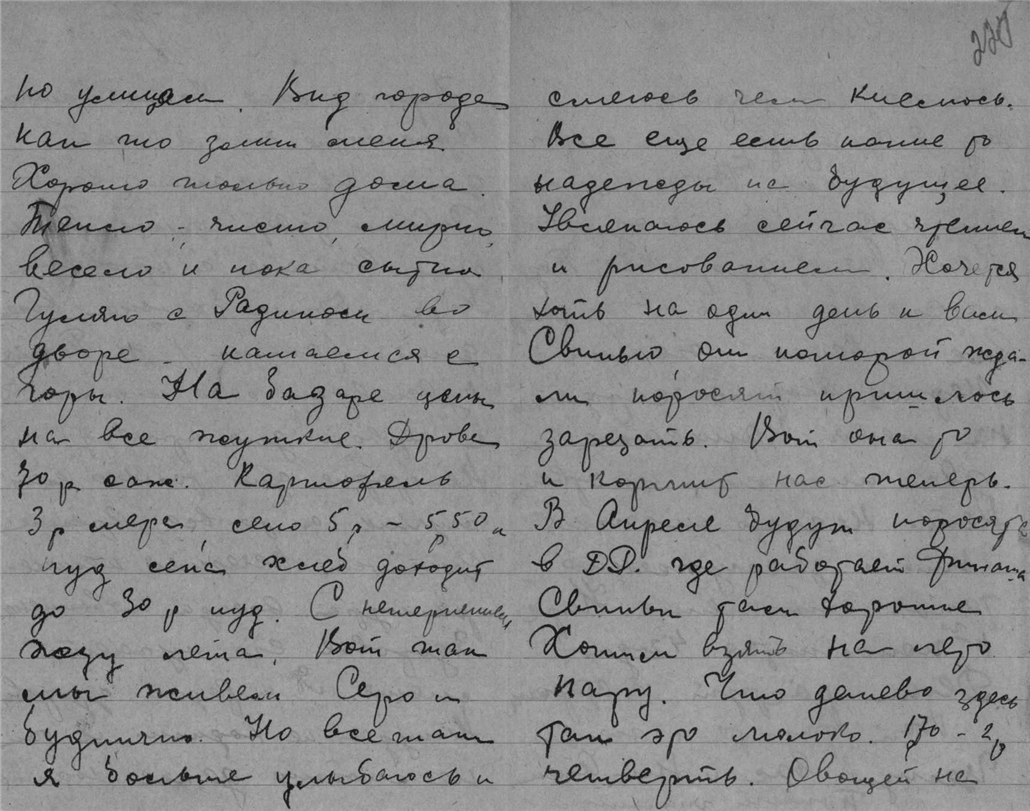 220
по улицам. Вид города
как то залит меня.
Хорошо только дома.
Тепло, чисто, мирно,
весело и пока сытно.
Гуляю с Радиком во
дворе - катаемся с
горы. На базаре цены
на все жуткие. Дрова
30 р саж. Картофель
3 р мера, сено 5 р - 5 р 50 к
пуд сена хлеб доходит
до 30 р пуд. С нетерпением
жду лета. Вот так
мы живем Серо и
буднично. Но все таки
я больше улыбаюсь и
смеюсь чем кисслюсь.
Все еще есть какие то
надежды на будущее.
Увлекаюсь сейчас чтением
и рисованием. Хочется
хоть на один день к вам
Свинью от которой жда-
ли поросят пришлось
зарезать. Вот она то
и кормит нас теперь.
В Апреле будут поросята
в ДД. где работает
Свиньи там хорошие
Хотим взять на лето
пару. Что дешево здесь
так это молоко. 1р 70 - 2р
четверть. Овощей на